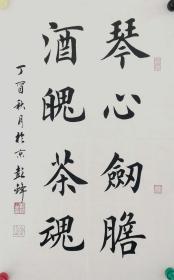 琴心劒膽
酒魄茶魂
丁酉秋月於京彭鋒